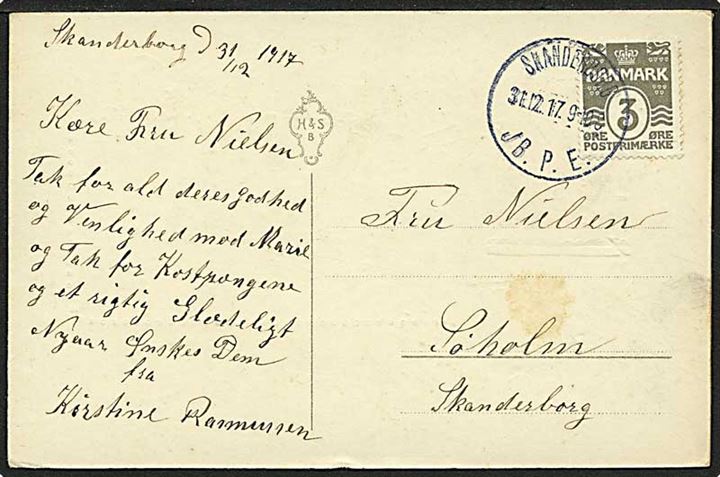 Skanderborg D 31/12 1917
Kære Fru Nielsen
Tak for ald deres Godhed
og Venlighed mod Marie
og Tak for Kostpengene
og et rigtig Glædeligt
Nyaar Ønskes Dem
fra
Kirstine Rasmussen
H & S
B
SKANDERBORG
31.12.17. 9-
JB. P. E.
DANMARK
3
ØRE ØRE
POSTFRIMÆRKE
Fru Nielsen
Søholm
Skanderborg